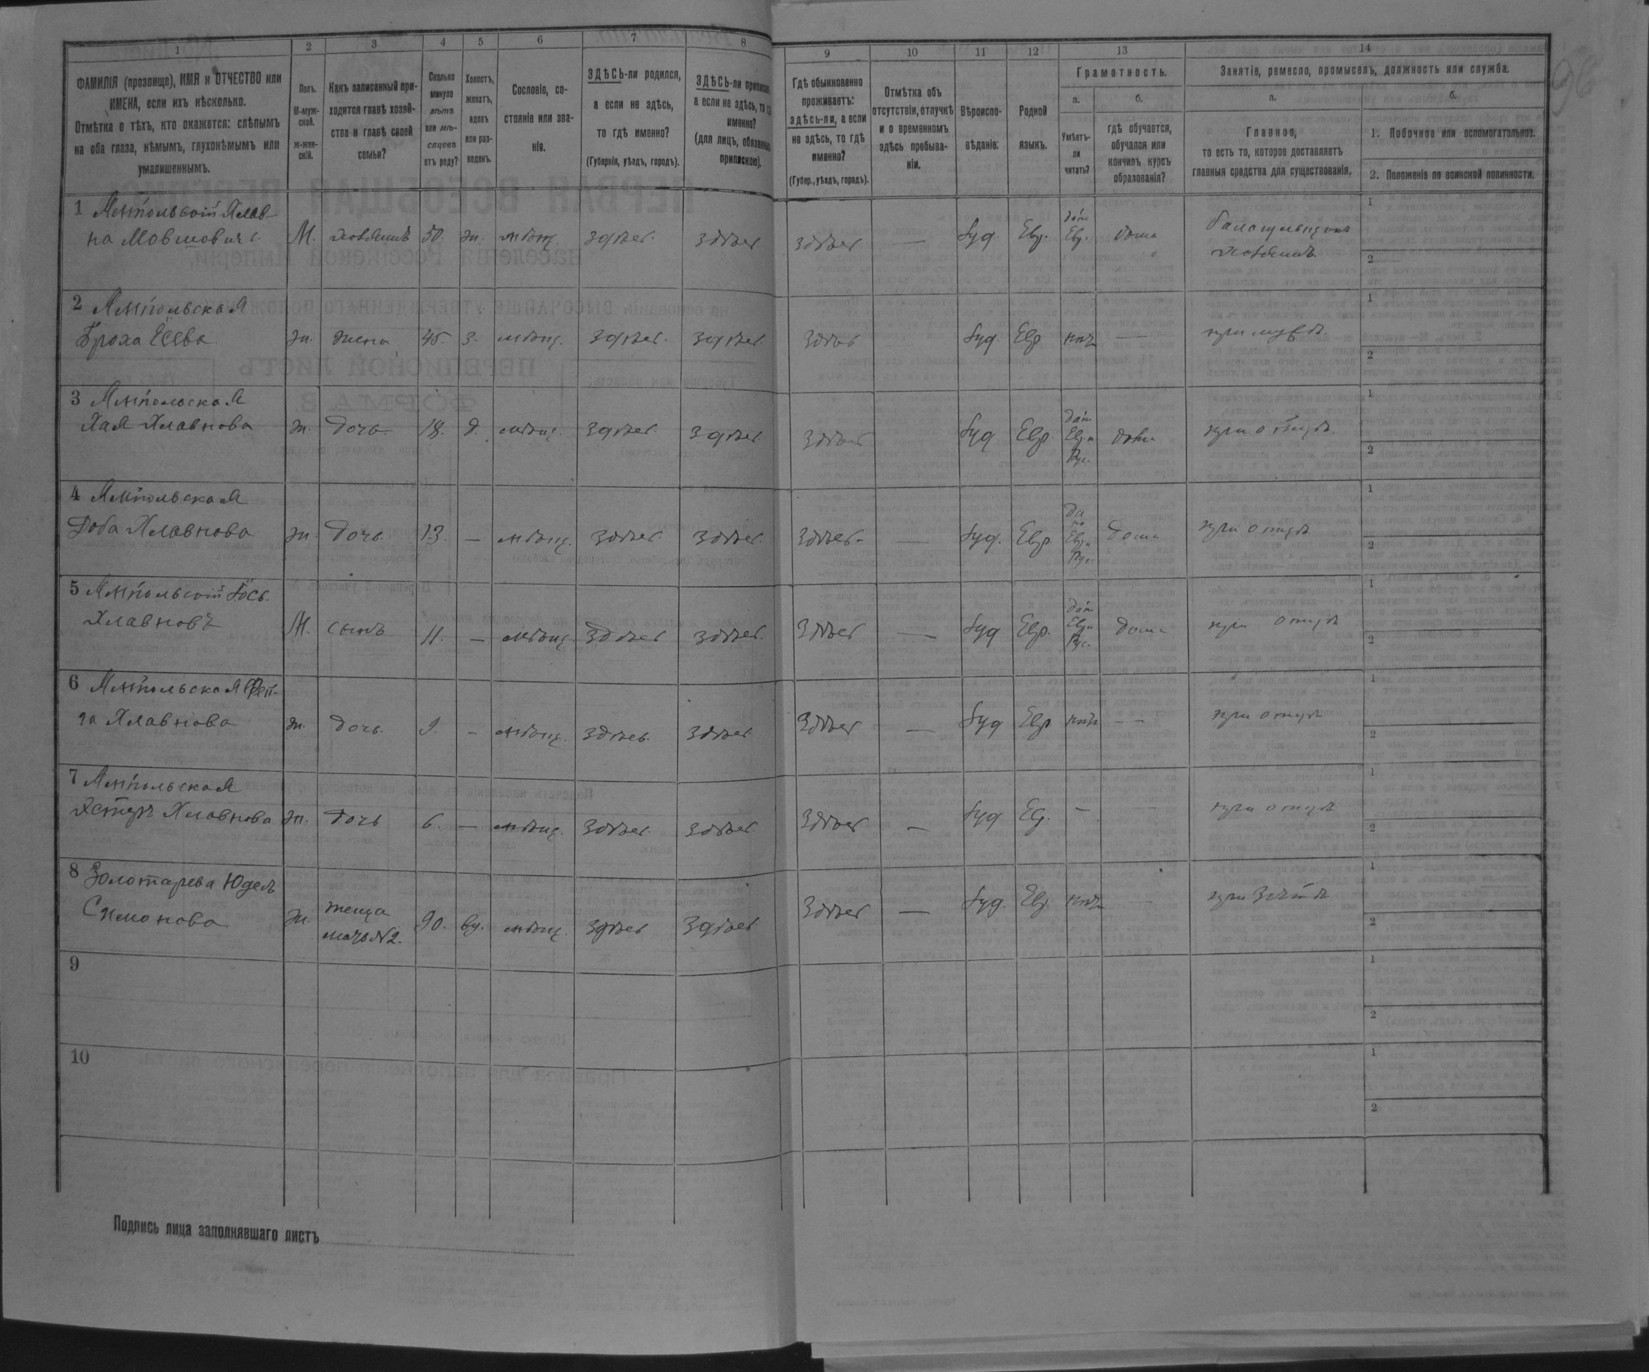 1 2 3 4 5 6 7 8 9 10 11 12 13 14
ФАМИЛІЯ (прозвище), ИМЯ и ОТЧЕСТВО или
ИМЕНА, если ихъ нѣсколько.
Отмѣтка о тѣхъ, кто окажется: слѣпымъ
на оба глаза, нѣмымъ, глухонѣмымъ или
умалишеннымъ.
Полъ.
М-муж-
ской.
Ж-жен-
скій.
Какъ записанный при-
ходится главѣ хозяй-
ства и главѣ своей
семьи?
Сколько
минуло
лѣтъ
или мѣ-
сяцевъ
отъ роду?
Холостъ,
женатъ,
вдовъ
или раз-
веденъ.
Сословіе, со-
стояніе или зва-
ніе.
ЗДѢСЬ-ли родился,
а если не здѣсь,
то гдѣ именно?
(Губернія, уѣздъ, городъ).
ЗДѢСЬ-ли приписанъ,
а если не здѣсь, то гдѣ
именно?
(для лицъ, обязанныхъ
припискою).
Гдѣ обыкновенно
проживаетъ:
здѣсь-ли, а если
не здѣсь, то гдѣ
именно?
(Губер., уѣздъ, городъ).
Отмѣтка объ
отсутствіи, отлучкѣ
и о временномъ
здѣсь пребыва-
ніи.
Вѣроиспо-
вѣданіе.
Родной
языкъ.
Грамотность.
а. б.
Умѣетъ-
ли
читать?
гдѣ обучается,
обучался или
кончилъ курсъ
образованія?
Занятіе, ремесло, промыселъ, должность или служба.
а. б.
Главное,
то есть то, которое доставляетъ
главныя средства для существованія.
1. Побочное или вспомогательное.
2. Положеніе по воинской повинности.
1 Ямпольскій Хлав
на Мовшовичъ М. хозяинъ 50. жн. мѣщ здѣсь здѣсь здѣсь — Іуд. Евр. да Ев. дома
хозяинъ
1
2
2 Ямпольская
Броха жн. жена 45. з. мѣщ. здѣсь здѣсь здѣсь Іуд Евр нѣтъ — при мужѣ
1
2
3 Ямпольская
Хая Хлавнова ж. дочь 18. д. мѣщ. здѣсь здѣсь здѣсь Іуд Евр да Евр и Рус. дома при отцѣ
1
2
4 Ямпольская
Хлавнова жн. дочь 13. — мѣщ. здѣсь здѣсь здѣсь — Іуд. Евр да по Евр и Рус. дома при отцѣ
1
2
5 Ямпольскій Іось
Хлавновъ М. сынъ 11. — мѣщ здѣсь здѣсь здѣсь — Іуд Евр. да Евр и Рус. дома при отцѣ
1
2
6 Ямпольская Фей-
га Хлавнова ж. дочь 9. — мѣщ. здѣсь здѣсь здѣсь — Іуд Евр нѣтъ — при отцѣ
1
2
7 Ямпольская
Хлавнова жн. дочь 6. — мѣщ. здѣсь здѣсь здѣсь — Іуд Ев. — при отцѣ
1
2
8 Золотарева Юдель
Симонова жн теща
мать №2. 90. вд. мѣщ. здѣсь здѣсь здѣсь — Іуд. Евр. нѣтъ — при зятѣ
1
2
9
1
2
10
1
2
Подпись лица заполнявшаго листъ
96